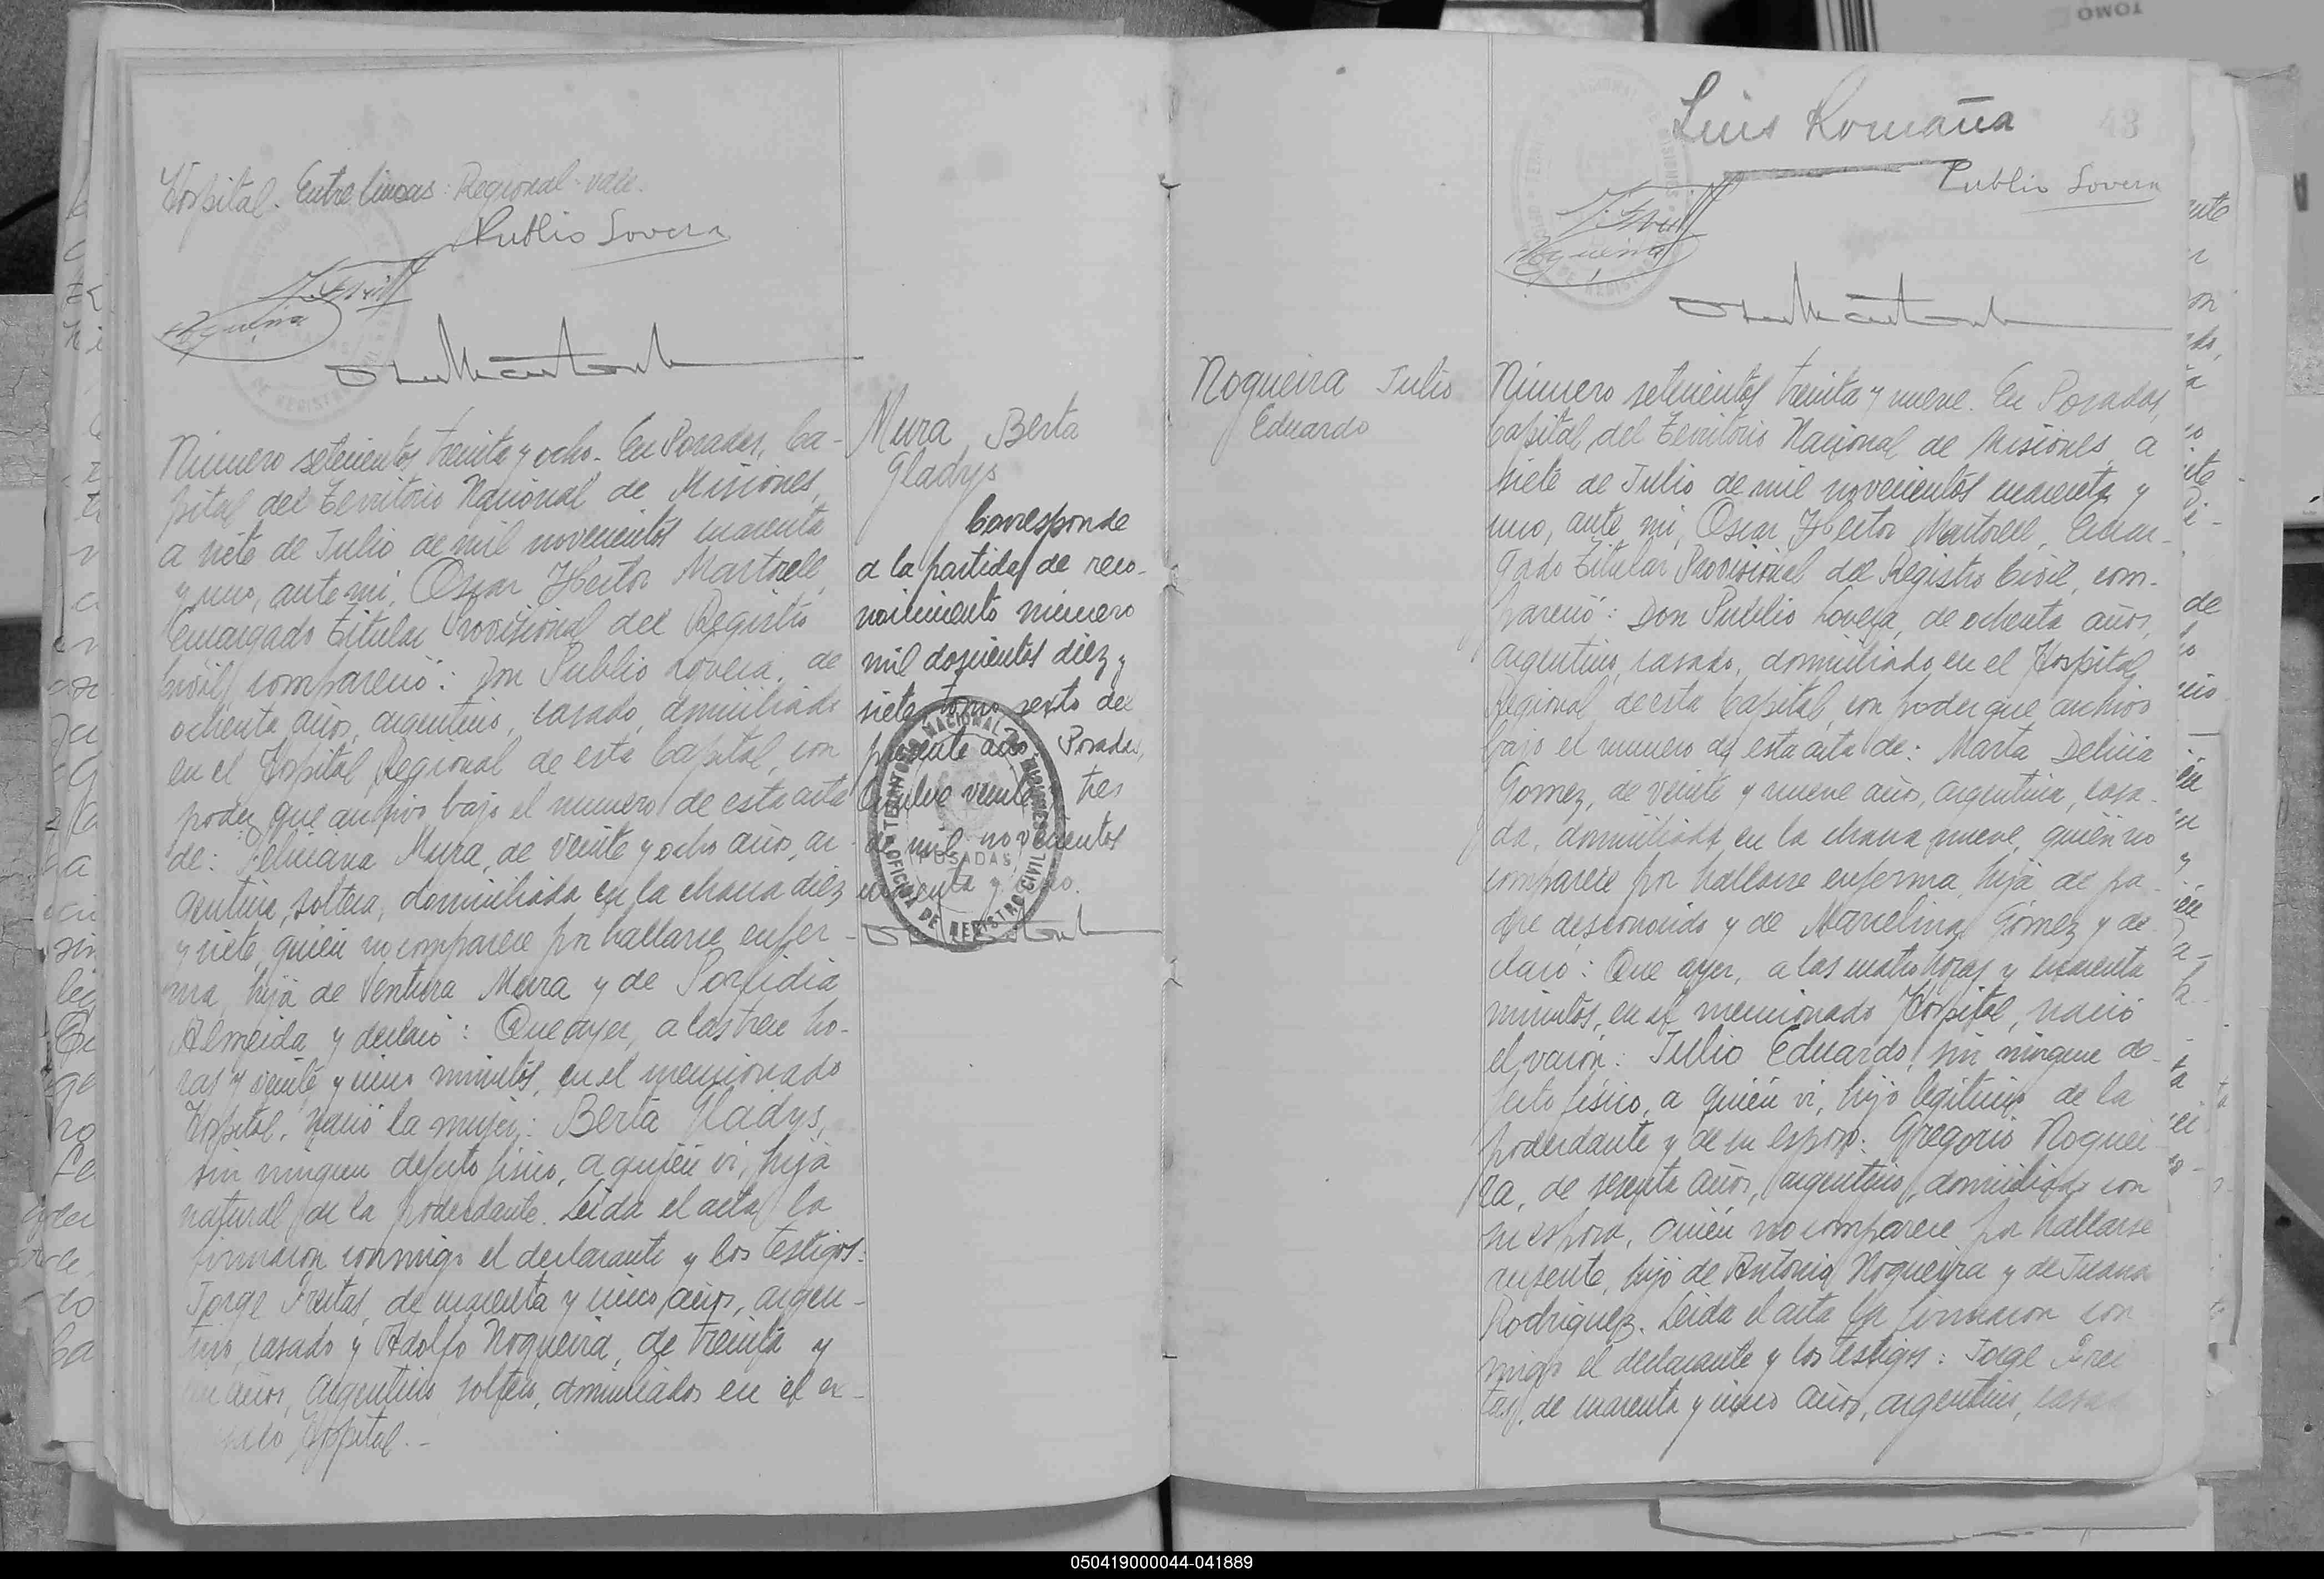 Hospital. Entre lineas: Regional-vale.
Publio Lovera
J. Freit
Nogueira
Número setecientos treinta y ocho. En Posadas, Ca-
pital del Territorio Nacional de Misiones,
a siete de Julio de mil novecientos cuarenta
y uno, ante mi, Oscar Hector Martorell,
Encargado Titular Provisional del Registro
Civil, compareció: Don Publio Lovera, de
ochenta años, argentino, casado, domiciliado
en el Hospital Regional de esta Capital, con
poder que archivo bajo el numero de esta acta
de: Feliciana Mura, de veinte y ocho años, ar-
gentina, soltera, domiciliada en la chacra diez
y siete, quién no comparece por hallarse enfer-
ma, hija de Ventura Mura y de Porfidia
Almeida y declaró: Que ayer, a las trece ho-
ras y veinte y cinco minutos, en el mencionado
Hospital, nació la mujer: Berta Gladys,
sin ningun defecto fisico, a quién vi, hija
natural de la poderdante. Leida el acta la
firmaron conmigo el declarante y los testigos:
Jorge Freitas, de cuarenta y cinco años, argen-
tino, casado y Adolfo Nogueira, de treinta y
años, argentino, soltero, domiciliados en el ex-
Hospital.-
Mura Berta
Gladys
Corresponde
a la partida de reco-
nocimiento número
mil doscientos diez y
siete, tomo sexto del
presente año. Posadas,
Octubre veinte y tres
de mil novecientos
cuarenta y uno.
TERRITORIO NACIONAL DE MISIONES
POSADAS
OFICINA DE REGISTRO CIVIL
Luis Romaña
43
Publio Lovera
J. Freit
Nogueira
Nogueira Julio
Eduardo
Número setecientos treinta y nueve. En Posadas,
Capital del Territorio Nacional de Misiones, a
siete de Julio de mil novecientos cuarenta y
uno, ante mi, Oscar Hector Martorell, Encar-
gado Titular Provisional del Registro Civil, com-
pareció: Don Publio Lovera, de ochenta años,
argentino, casado, domiciliado en el Hospital
Regional de esta Capital, con poder que archivo
bajo el numero de esta acta de: Marta Delicia
Gomez, de veinte y nueve años, argentina, casa-
da, domiciliada en la chacra nueve, quién no
comparece por hallarse enferma, hija de pa-
dre desconocido y de Marcelina Gómez y de-
claró: Que ayer, a las cuatro horas y cuarenta
minutos, en el mencionado Hospital, nació
el varón: Julio Eduardo, sin ningun de-
fecto fisico, a quién vi, hijo legitimo de la
poderdante y de su esposo: Gregorio Noguei-
ra, de sesenta años, argentino, domiciliado con
su esposa, quién no comparece por hallarse
ausente, hijo de Antonio Nogueira y de Juana
Rodriguez. Leida el acta la firmaron con
migo el declarante y los testigos: Jorge Frei
tas, de cuarenta y cinco años, argentino, casado
050419000044-041889